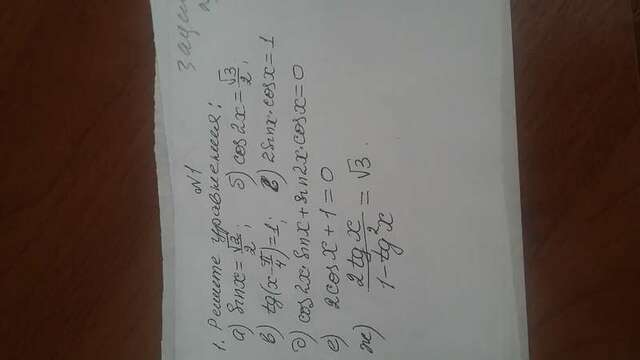 №1
1. Решите уравнения:
а) sinx = √2/2; б) cos2x = √3/2;
в) tg(x-π/4)=1; г) 2sinx·cosx=1
д) cos2x·sinx+sin2x·cosx=0
е) 2cosx+1=0
ж) 2tgx/(1-tg²x) = √3.